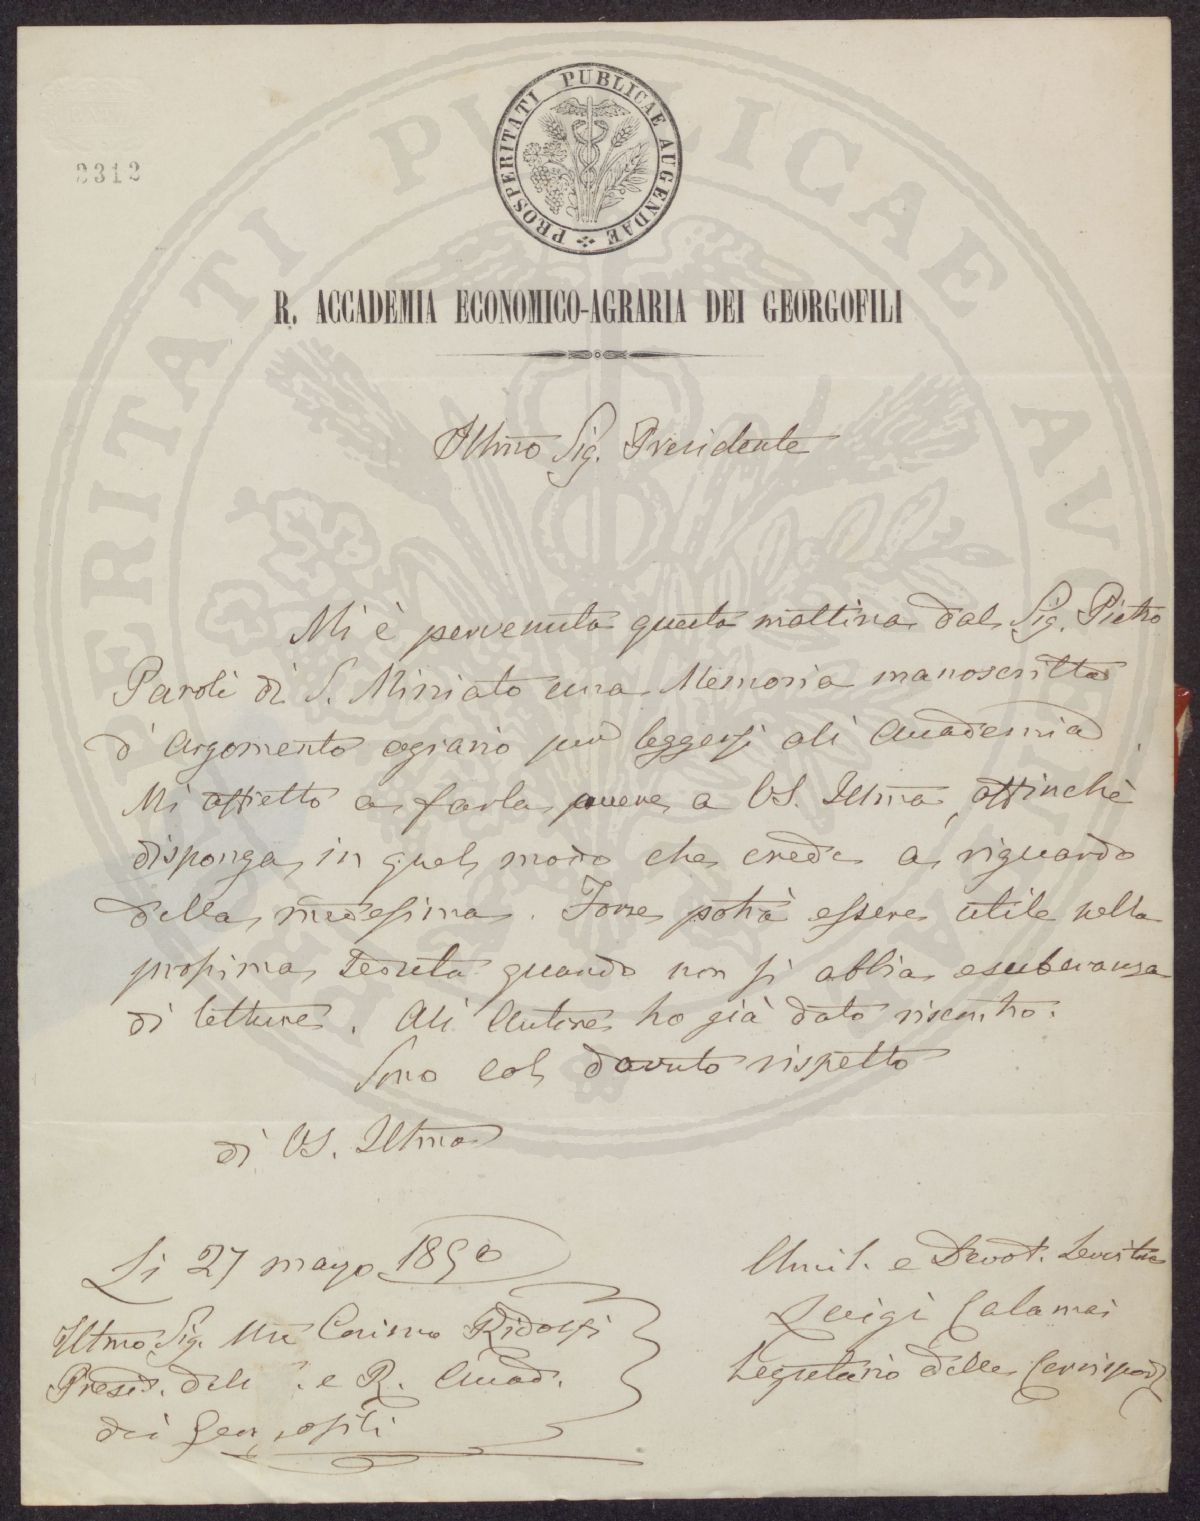 PROSPERITATI PUBLICAE AUGENDAE
3312
R. ACCADEMIA ECONOMICO-AGRARIA DEI GEORGOFILI
Illmo Sig. Presidente
Mi è pervenuta questa mattina dal Sig. Pietro
Paroli di S. Miniato una Memoria manoscritta
d'argomento agrario per leggersi all'Accademia.
Mi affretto a farla avere a VS. Illma, affinchè
disponga in quel modo che crede a riguardo
della medesima. Forse potrà essere utile nella
prossima seduta quando non si abbia esuberanza
di letture. All'Autore ho già dato riscontro.
Sono col dovuto rispetto
di VS. Illma
Li 27 maggio 1850
Umil. e Devot. Servitore
Illmo Sig. Mse Cosimo Ridolfi
Luigi Calamai
Presid. dell' e R. Accad.
Segretario delle Corrispond
dei Georgofili